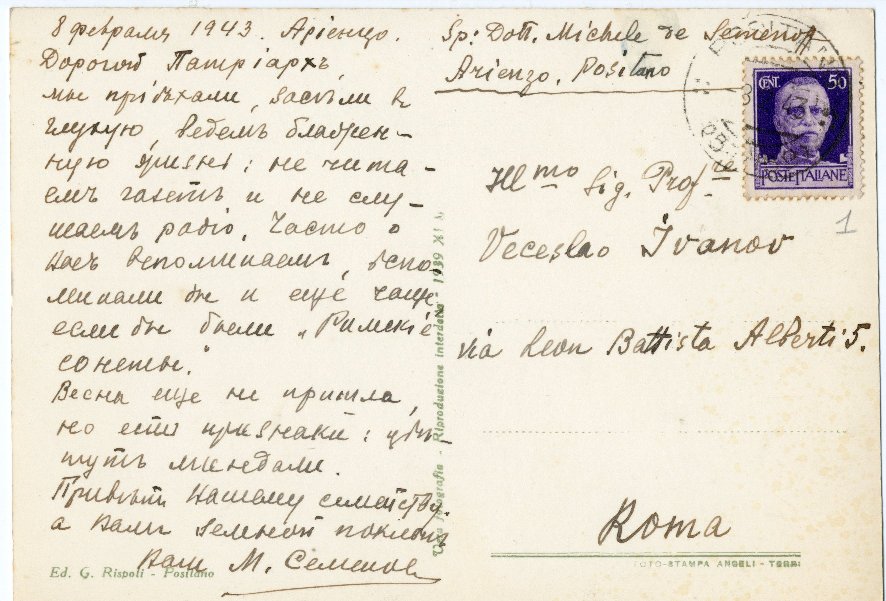 8 февраля 1943. Арiенцо.
Дорогой Патрiархъ,
мы прiѣхали, засѣли въ
глухую, ведемъ блаженную
жизнь: не чита-
емъ газетъ и не слу-
шаемъ радiо. Часто о
Васъ вспоминаемъ, вспо-
минали бы и еще чаще
если бы были „Римскiе
сонеты."
Весна еще не пришла,
но есть признаки: цвѣ-
тутъ миндали.
Привѣтъ Вашему семейству,
а Вамъ земной поклонъ
Ваш М. Семенов
Ed. G. Rispoli - Positano
Vera fotografia - Riproduzione interdetta - 1939 XI
Sp: Dott. Michele de Semenof
Arienzo, Positano
CENT. 50
POSTE ITALIANE
1
Ill mo Sig. Prof.
Veceslao Ivanov
via Leon Battista Alberti 5.
Roma
FOTO-STAMPA ANGELI - TERNI